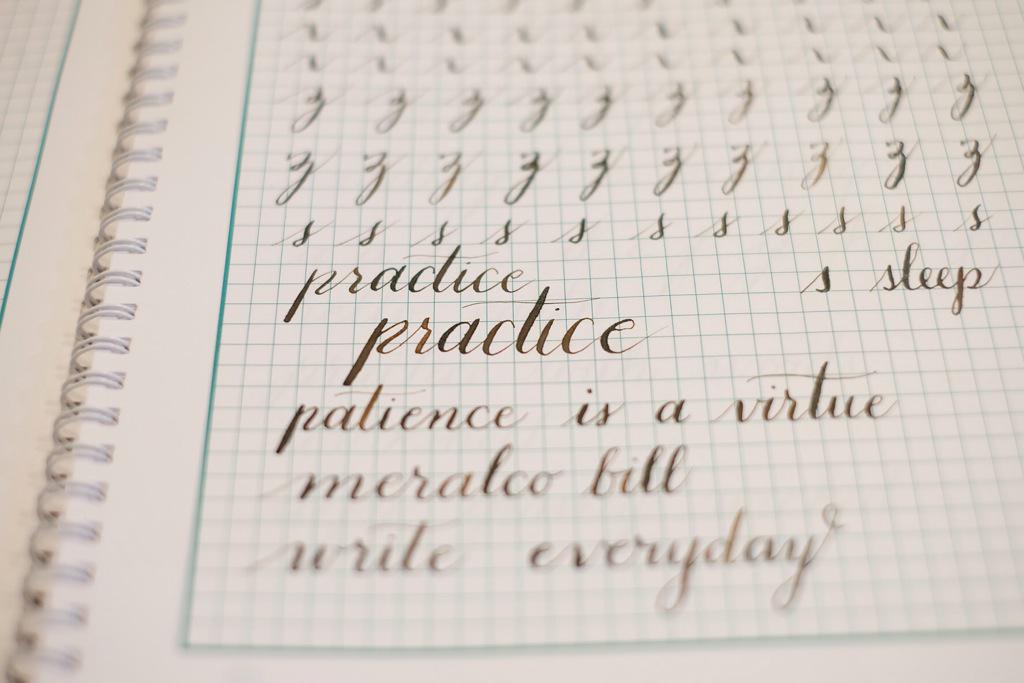 z z z z z z z z z z
z z z z z z z z z z
s s s s s s s s s s s
practice s sleep
practice
patience is a virtue
meralco bill
write everyday